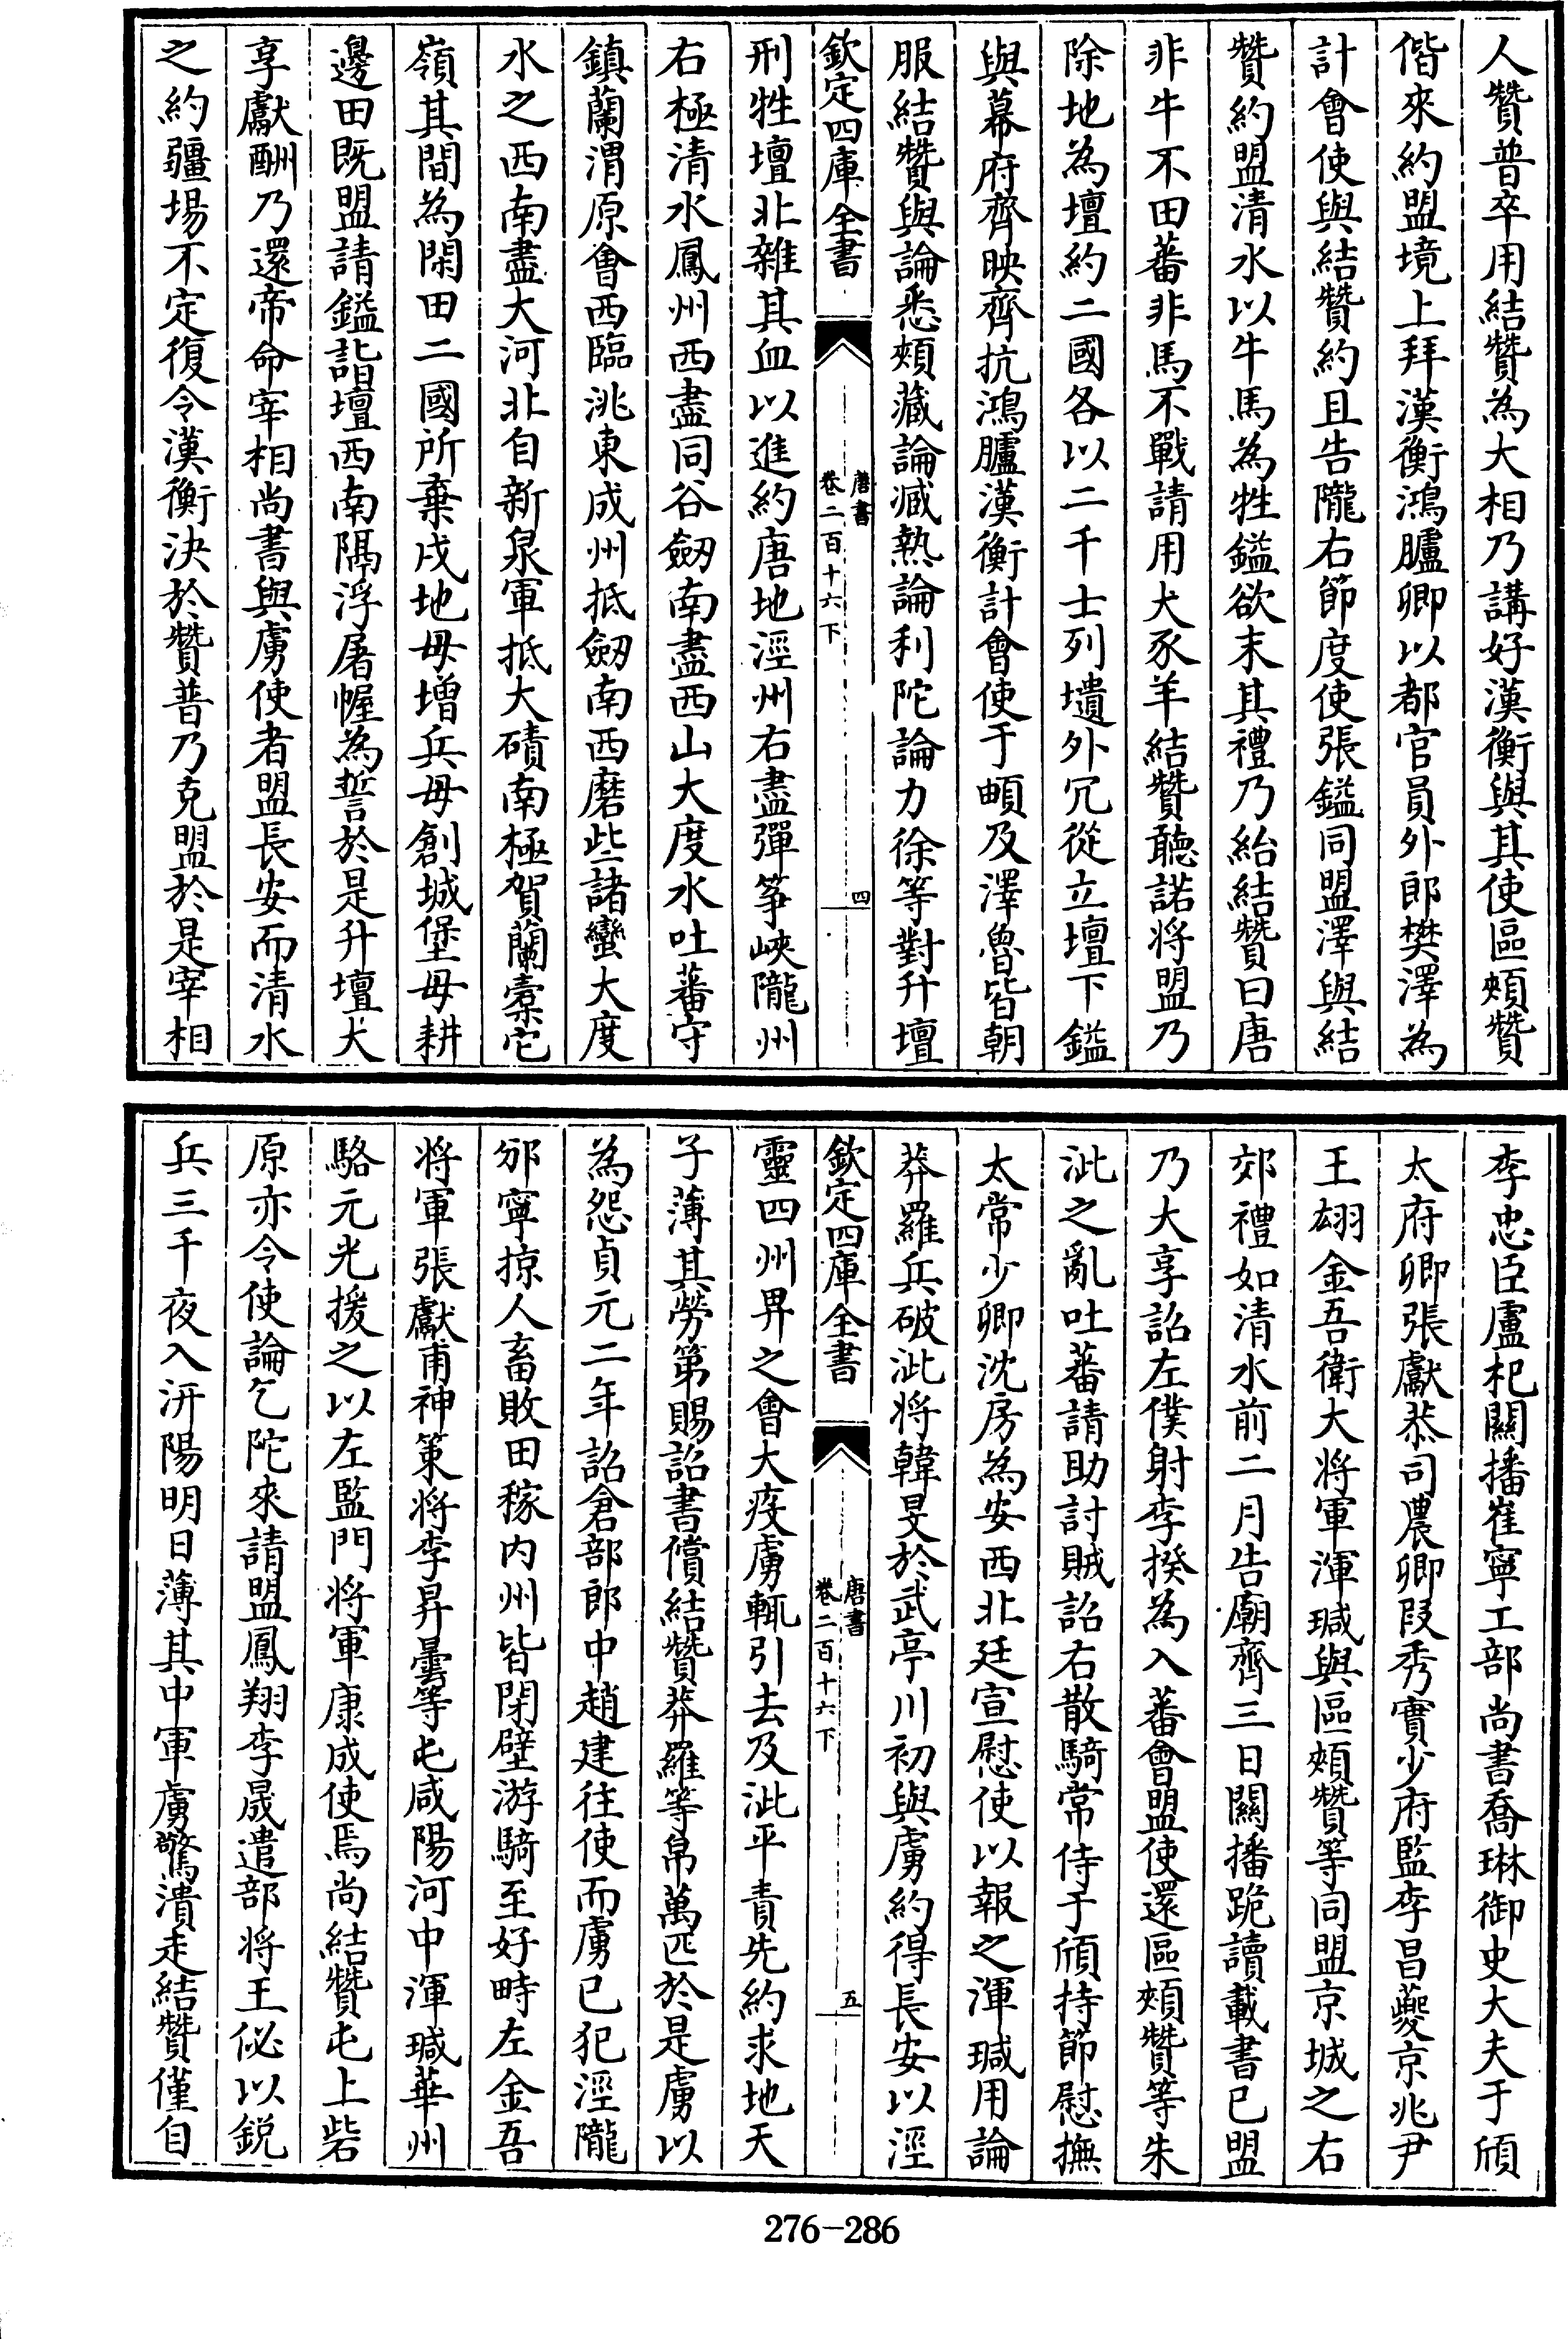 人贊普卒用結贊為大相乃講好漢衡與其使區頰贊
偕來約盟境上拜漢衡鴻臚卿以都官員外郎樊澤為
計會使與結贊約且告隴右節度使張鎰同盟澤與結
贊約盟清水以牛馬為牲鎰欲末其禮乃紿結贊曰唐
非牛不田蕃非馬不戰請用犬豕羊結贊聽諾將盟乃
除地為壇約二國各以二千士列壝外冗從立壇下鎰
與幕府齊映齊抗鴻臚漢衡計會使于頔及澤魯皆朝
服結贊與論悉頰藏論臧熱論利陀論力徐等對升壇
欽定四庫全書
唐書
卷二百十六下
四
刑牲壇北雜其血以進約唐地涇州右盡彈筝峽隴州
右極清水鳳州西盡同谷劒南盡西山大度水吐蕃守
鎮蘭渭原會西臨洮東成州抵劒南西磨些諸蠻大度
水之西南盡大河北自新泉軍抵大磧南極賀蘭橐它
嶺其間為閑田二國所棄戍地毋增兵毋創城堡毋耕
邊田既盟請鎰詣壇西南隅浮屠幄為誓於是升壇大
享獻酬乃還帝命宰相尚書與虜使者盟長安而清水
之約疆場不定復令漢衡決於贊普乃克盟於是宰相
李忠臣盧杞關播崔寧工部尚書喬琳御史大夫于頎
太府卿張獻恭司農卿段秀實少府監李昌夔京兆尹
王翃金吾衛大將軍渾瑊與區頰贊等同盟京城之右
郊禮如清水前二月告廟齊三日關播跪讀載書已盟
乃大享詔左僕射李揆為入蕃會盟使還區頰贊等朱
泚之亂吐蕃請助討賊詔右散騎常侍于頎持節慰撫
太常少卿沈房為安西北廷宣慰使以報之渾瑊用論
莽羅兵破泚將韓旻於武亭川初與虜約得長安以涇
欽定四庫全書
唐書
卷二百十六下
五
靈四州畀之會大疫虜輒引去及泚平責先約求地天
子薄其勞第賜詔書償結贊莽羅等帛萬匹於是虜以
為怨貞元二年詔倉部郎中趙建往使而虜已犯涇隴
邠寧掠人畜敗田稼内州皆閉壁游騎至好畤左金吾
將軍張獻甫神策將李昇曇等屯咸陽河中渾瑊華州
駱元光援之以左監門將軍康成使焉尚結贊屯上砦
原亦令使論乞陀來請盟鳳翔李晟遣部將王佖以銳
兵三千夜入汧陽明日薄其中軍虜驚潰走結贊僅自
276-286